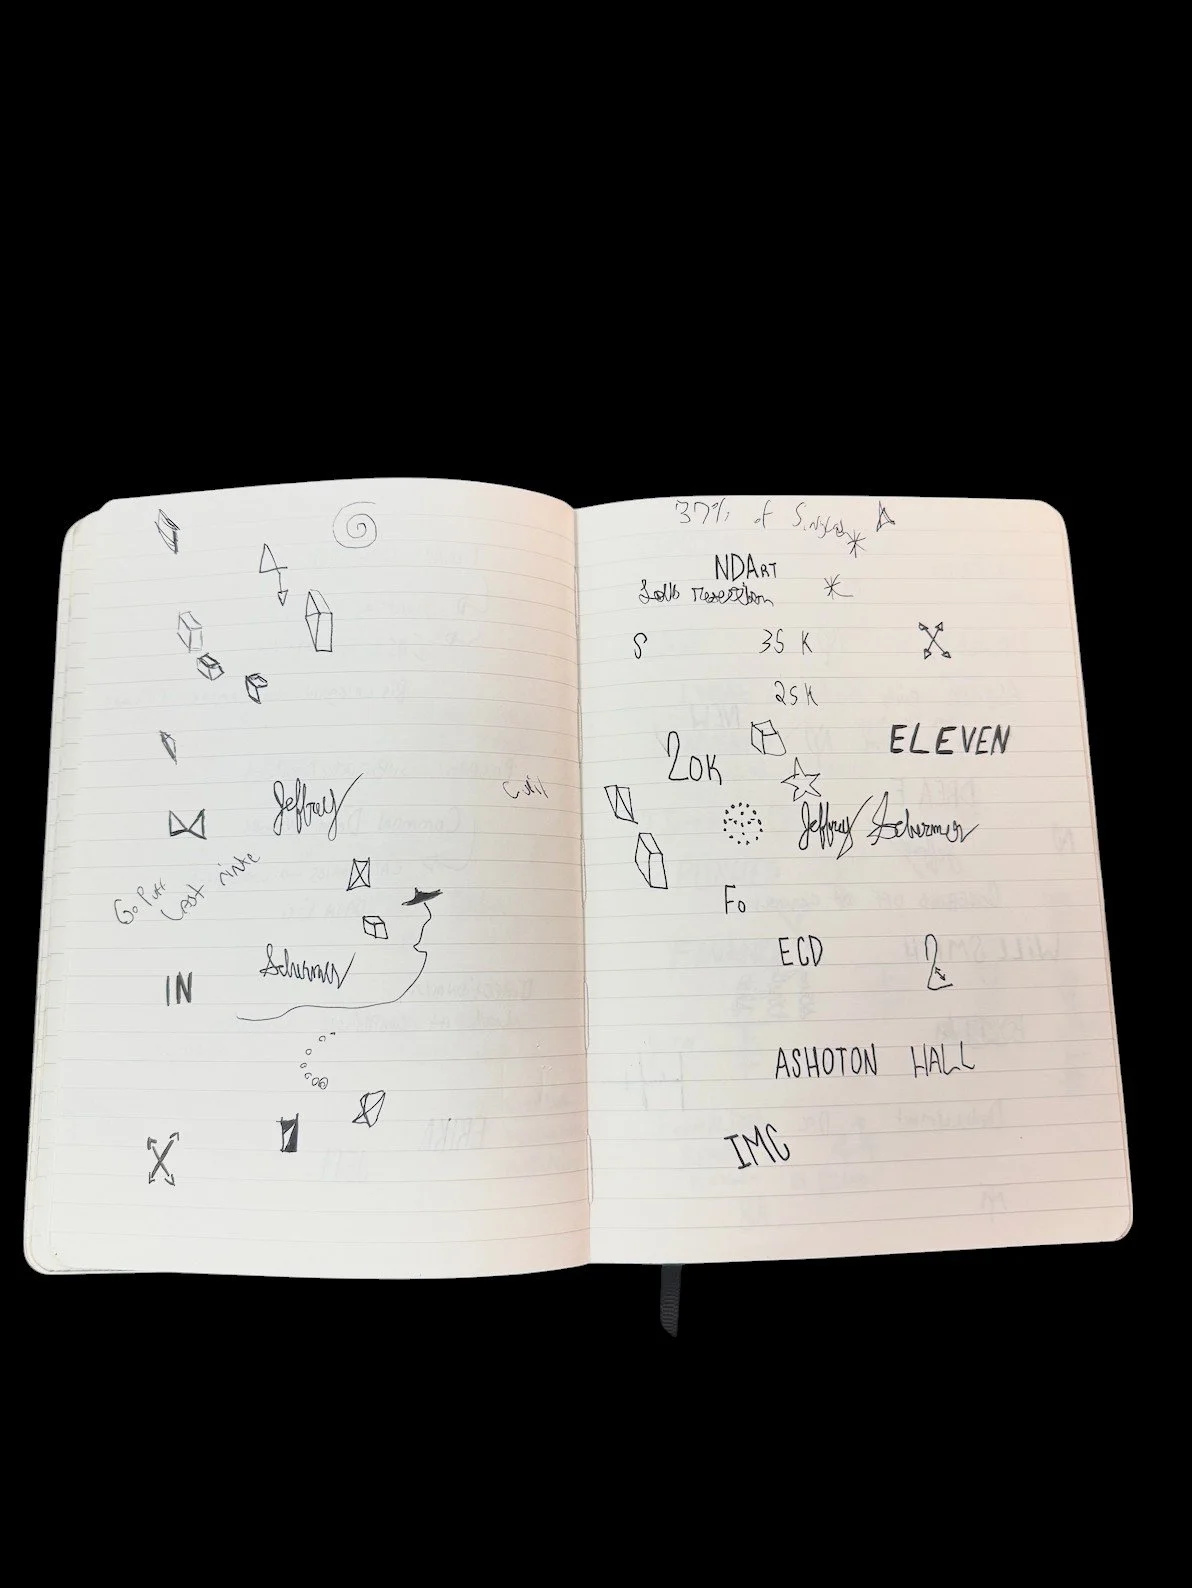 Jeffrey
Go Puff
Last nite
Schermer
IN
37% of Singles
NDART
S 35 K
25K
ELEVEN
20K
Jeffrey Schermer
Fo
ECD 2
ASHOTON HALL
IMG